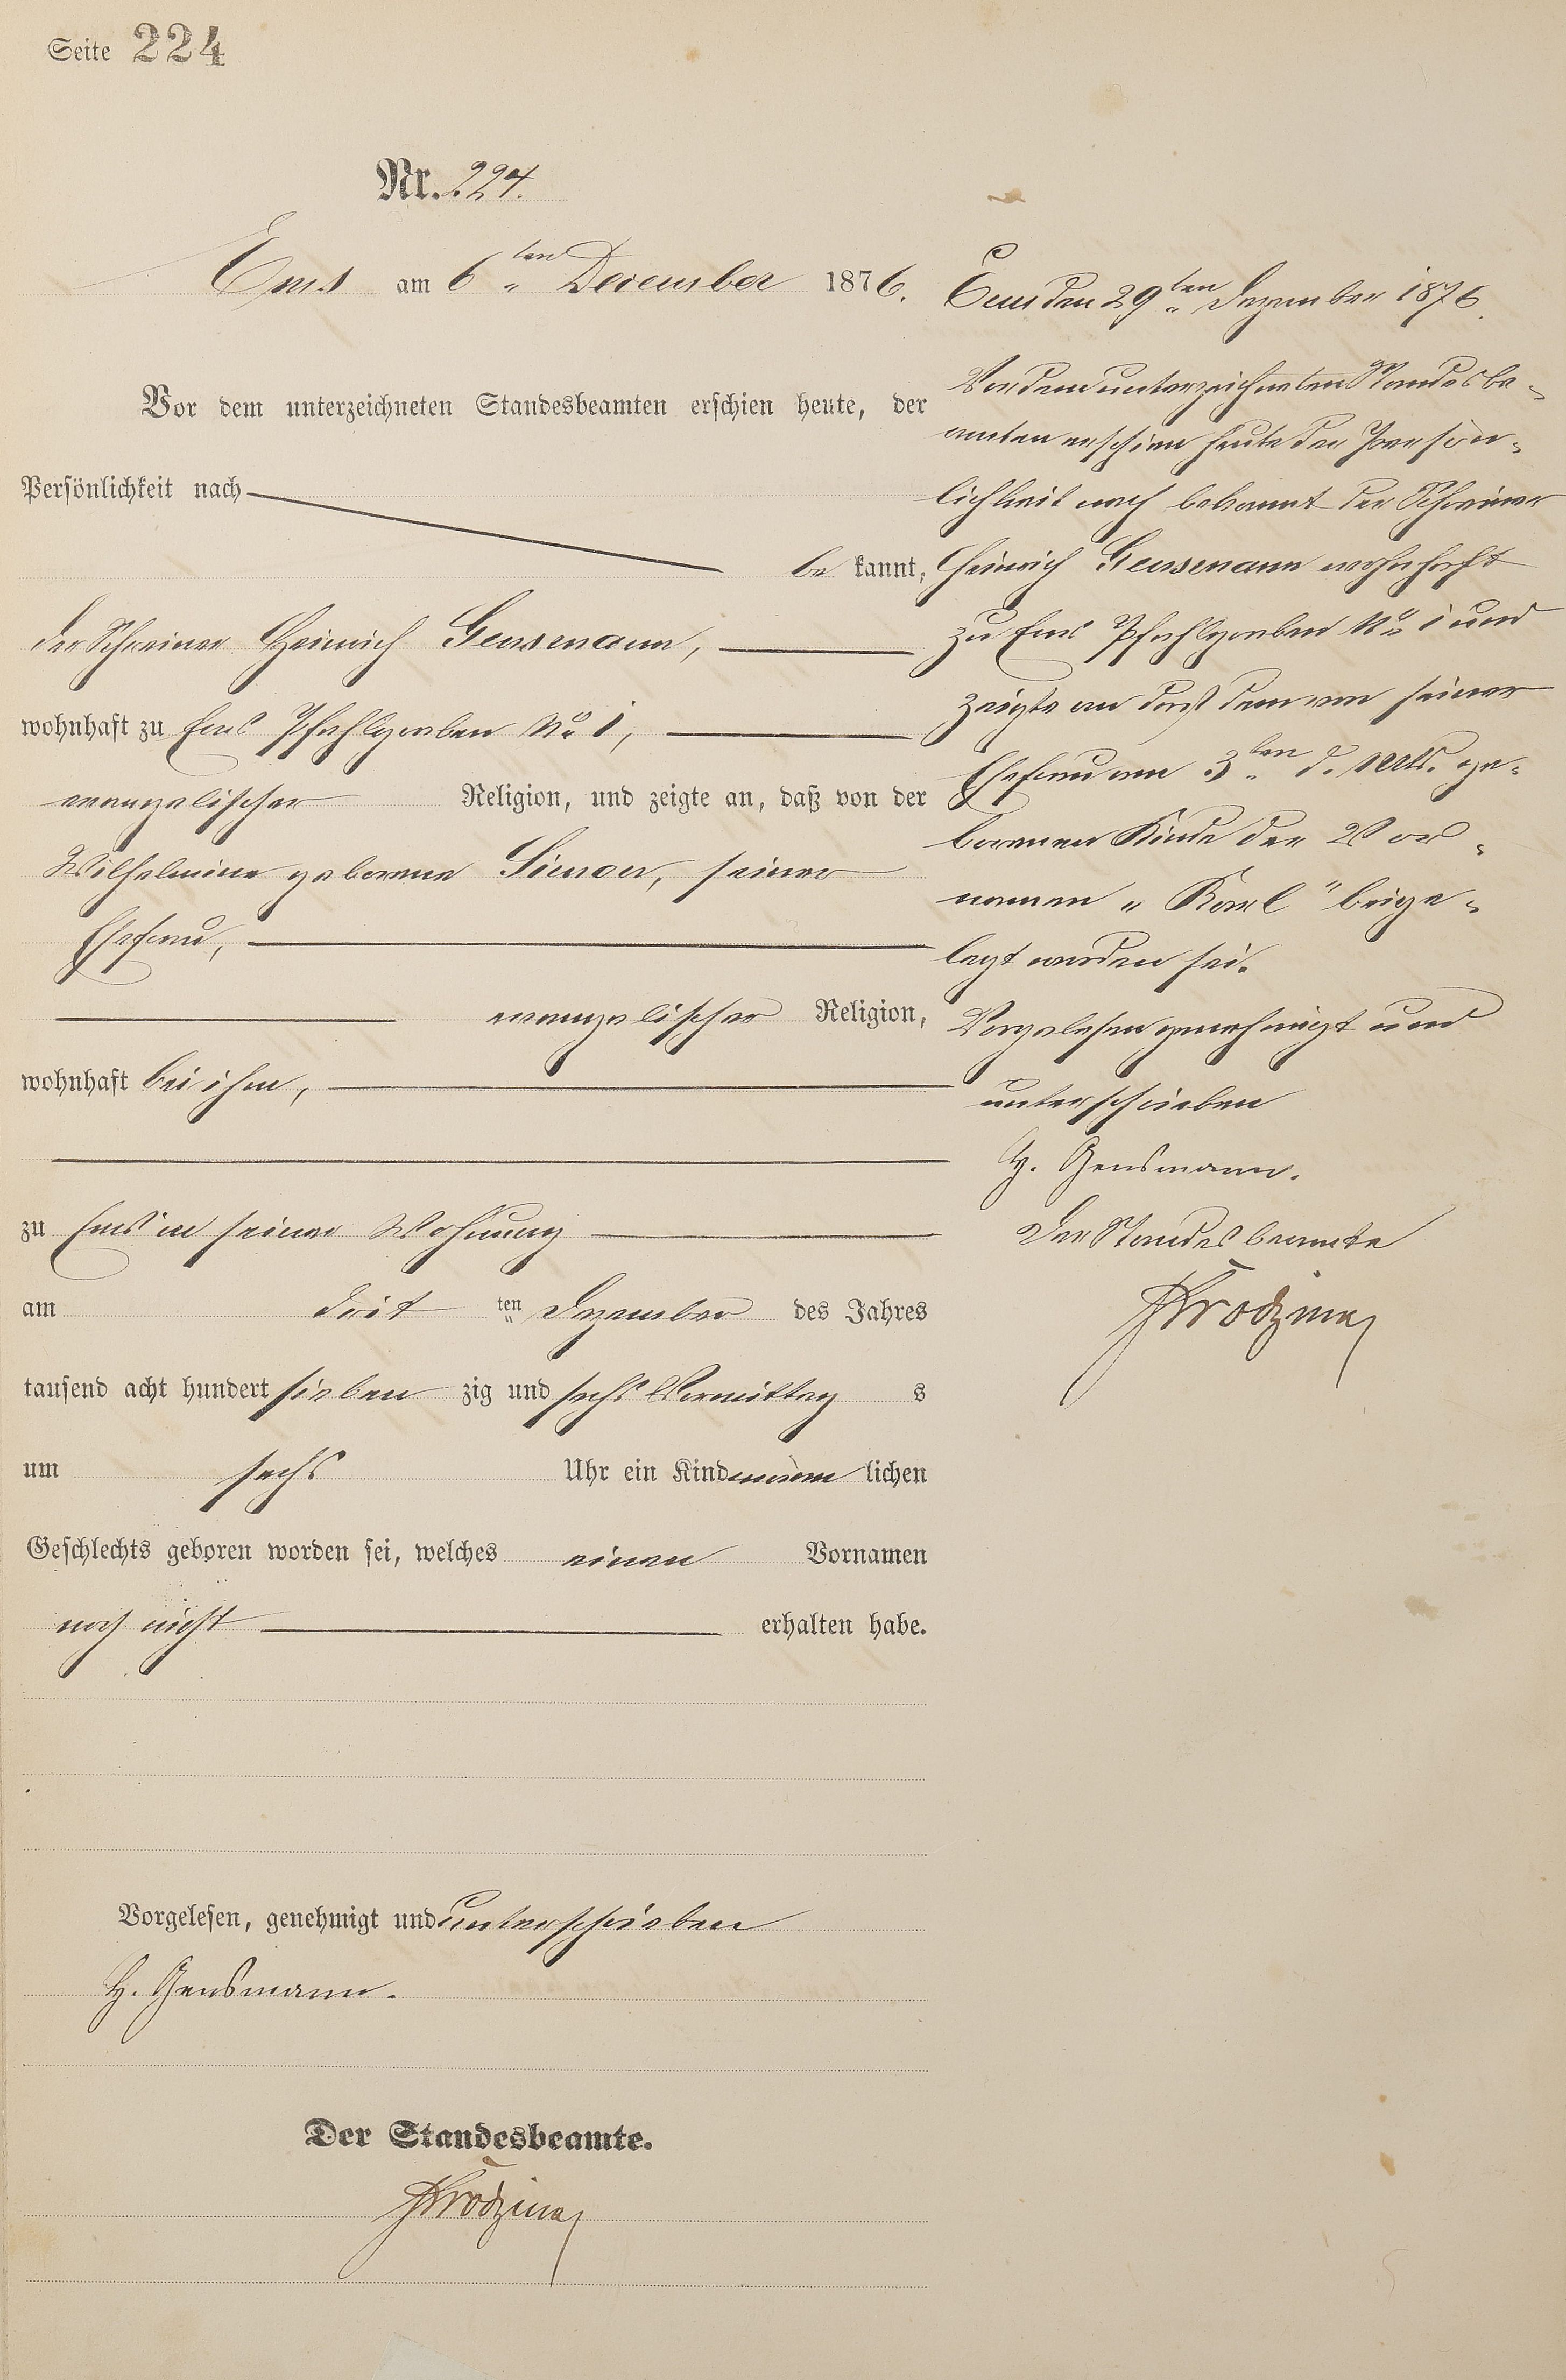 Seite 224
Nr. 224.
Ems am 6ten December 1876.
Vor dem unterzeichneten Standesbeamten erschien heute, der
Persönlichkeit nach
be kannt,
der Schreiner Heinrich Gensmann,
wohnhaft zu Ems Pfahlgraben No 1,
evangelischer Religion, und zeigte an, daß von der
Wilhelmine geborene Simon, seiner
Ehefrau,
evangelischer Religion,
wohnhaft bei ihm,
zu Ems in seiner Wohnung
am drit ten Dezember des Jahres
tausend acht hundert sieben zig und sechs Vormittag s
um sechs Uhr ein Kind männ lichen
Geschlechts geboren worden sei, welches einen Vornamen
noch nicht erhalten habe.
Vorgelesen, genehmigt und unterschrieben
H. Gensmann.
Der Standesbeamte.
Ems den 29ten Dezember 1876.
Vor dem unterzeichneten Standesbe-
amten erschien heute der Persön-
lichkeit nach bekannt der Schreiner
Heinrich Gensemann wohnhaft
zu Ems Pfahlgraben No 1 und
zeigte an daß dem von seiner
Ehefrau am 3ten d. Mts. ge-
borenen Kinde der Vor-
namen "Karl" beige-
legt worden sei.
Vorgelesen genehmigt und
unterschrieben
H. Gensmann.
Der Standesbeamte